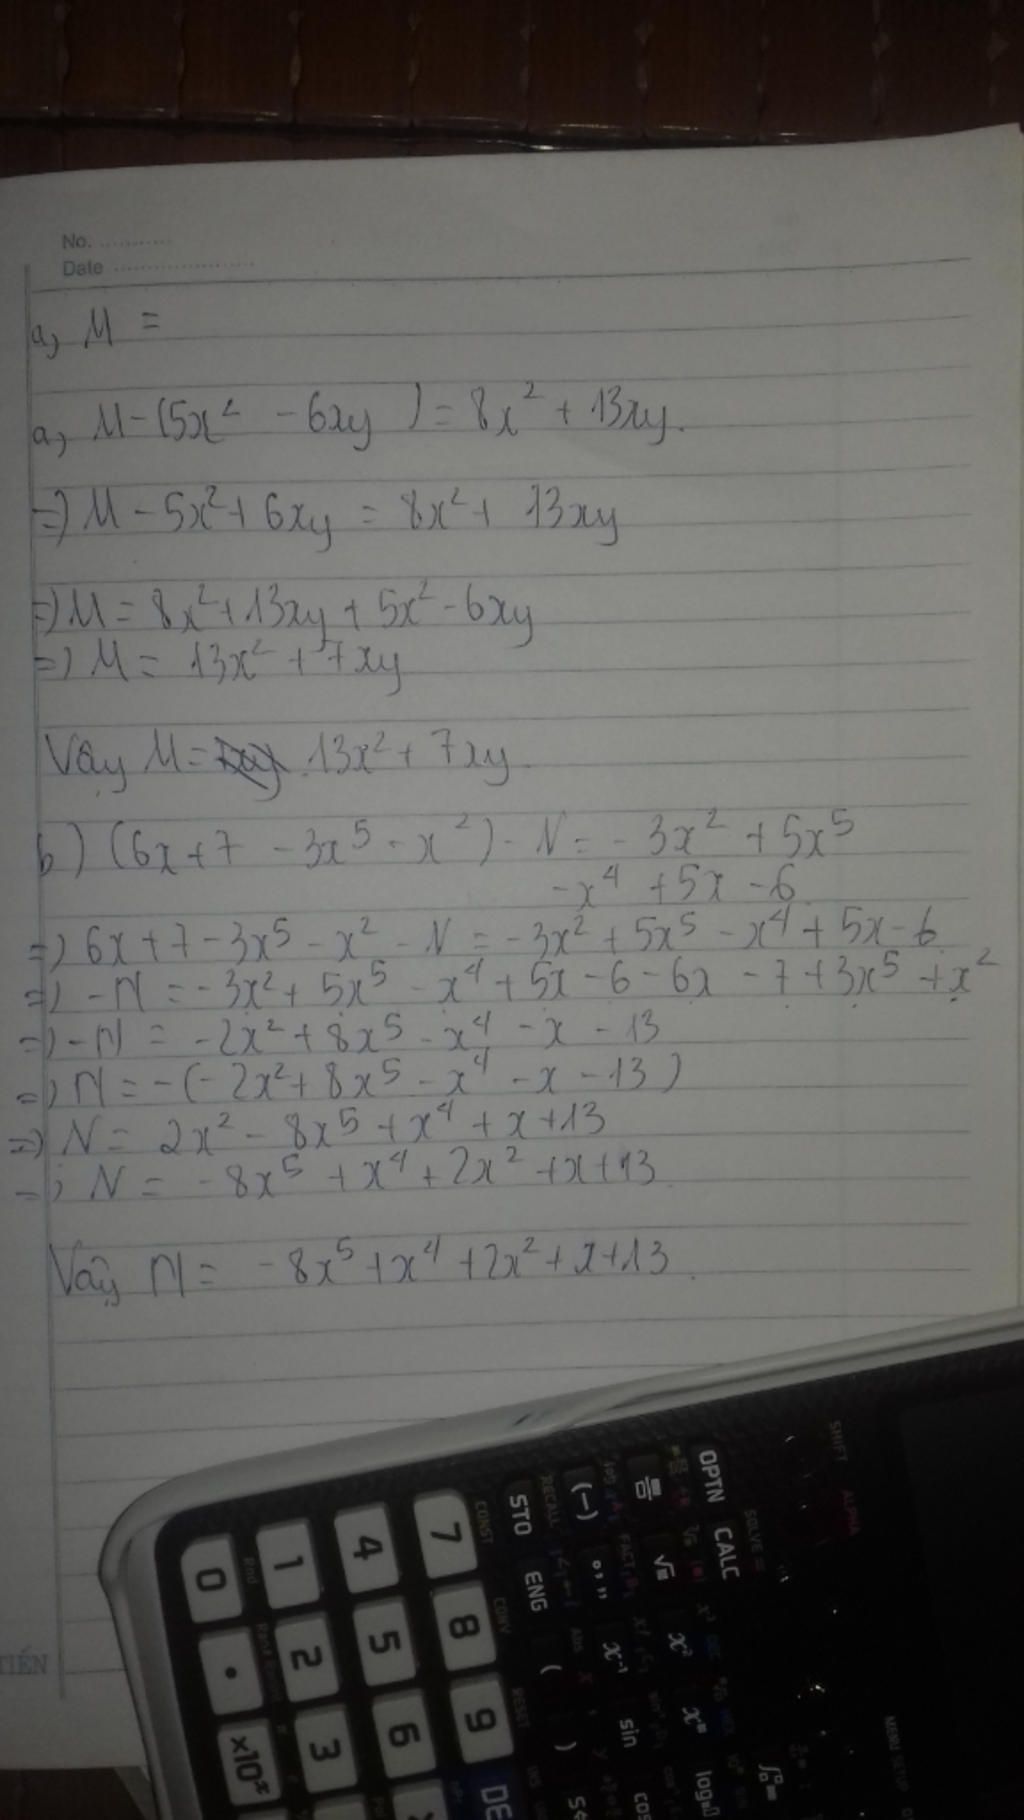 No. ...........
Date .....................
a, M =
a, M - (5x² - 6xy ) = 8x² + 13xy.
=) M - 5x² + 6xy = 8x² + 13xy
=) M = 8x² + 13xy + 5x² - 6xy
=) M = 13x² + 7xy
Vậy M = 13x² + 7xy
b) (6x + 7 - 3x⁵ - x²) - N = - 3x² + 5x⁵
- x⁴ + 5x - 6
=) 6x + 7 - 3x⁵ - x² - N = - 3x² + 5x⁵ - x⁴ + 5x - 6
=) - N = - 3x² + 5x⁵ - x⁴ + 5x - 6 - 6x - 7 + 3x⁵ + x²
=) - N = - 2x² + 8x⁵ - x⁴ - x - 13
=) N = - (- 2x² + 8x⁵ - x⁴ - x - 13)
=) N = 2x² - 8x⁵ + x⁴ + x + 13
=) N = - 8x⁵ + x⁴ + 2x² + x + 13
Vậy N = - 8x⁵ + x⁴ + 2x² + x + 13
TIẾN
SHIFT ALPHA MENU SETUP
OPTN CALC SOLVE =
(-) °,,, x⁻¹ sin cos
√ x² log
STO ENG ( )
RECALL
CONST CONV RESET
7 8 9 DE
4 5 6
1 2 3
0 . ×10ˣ